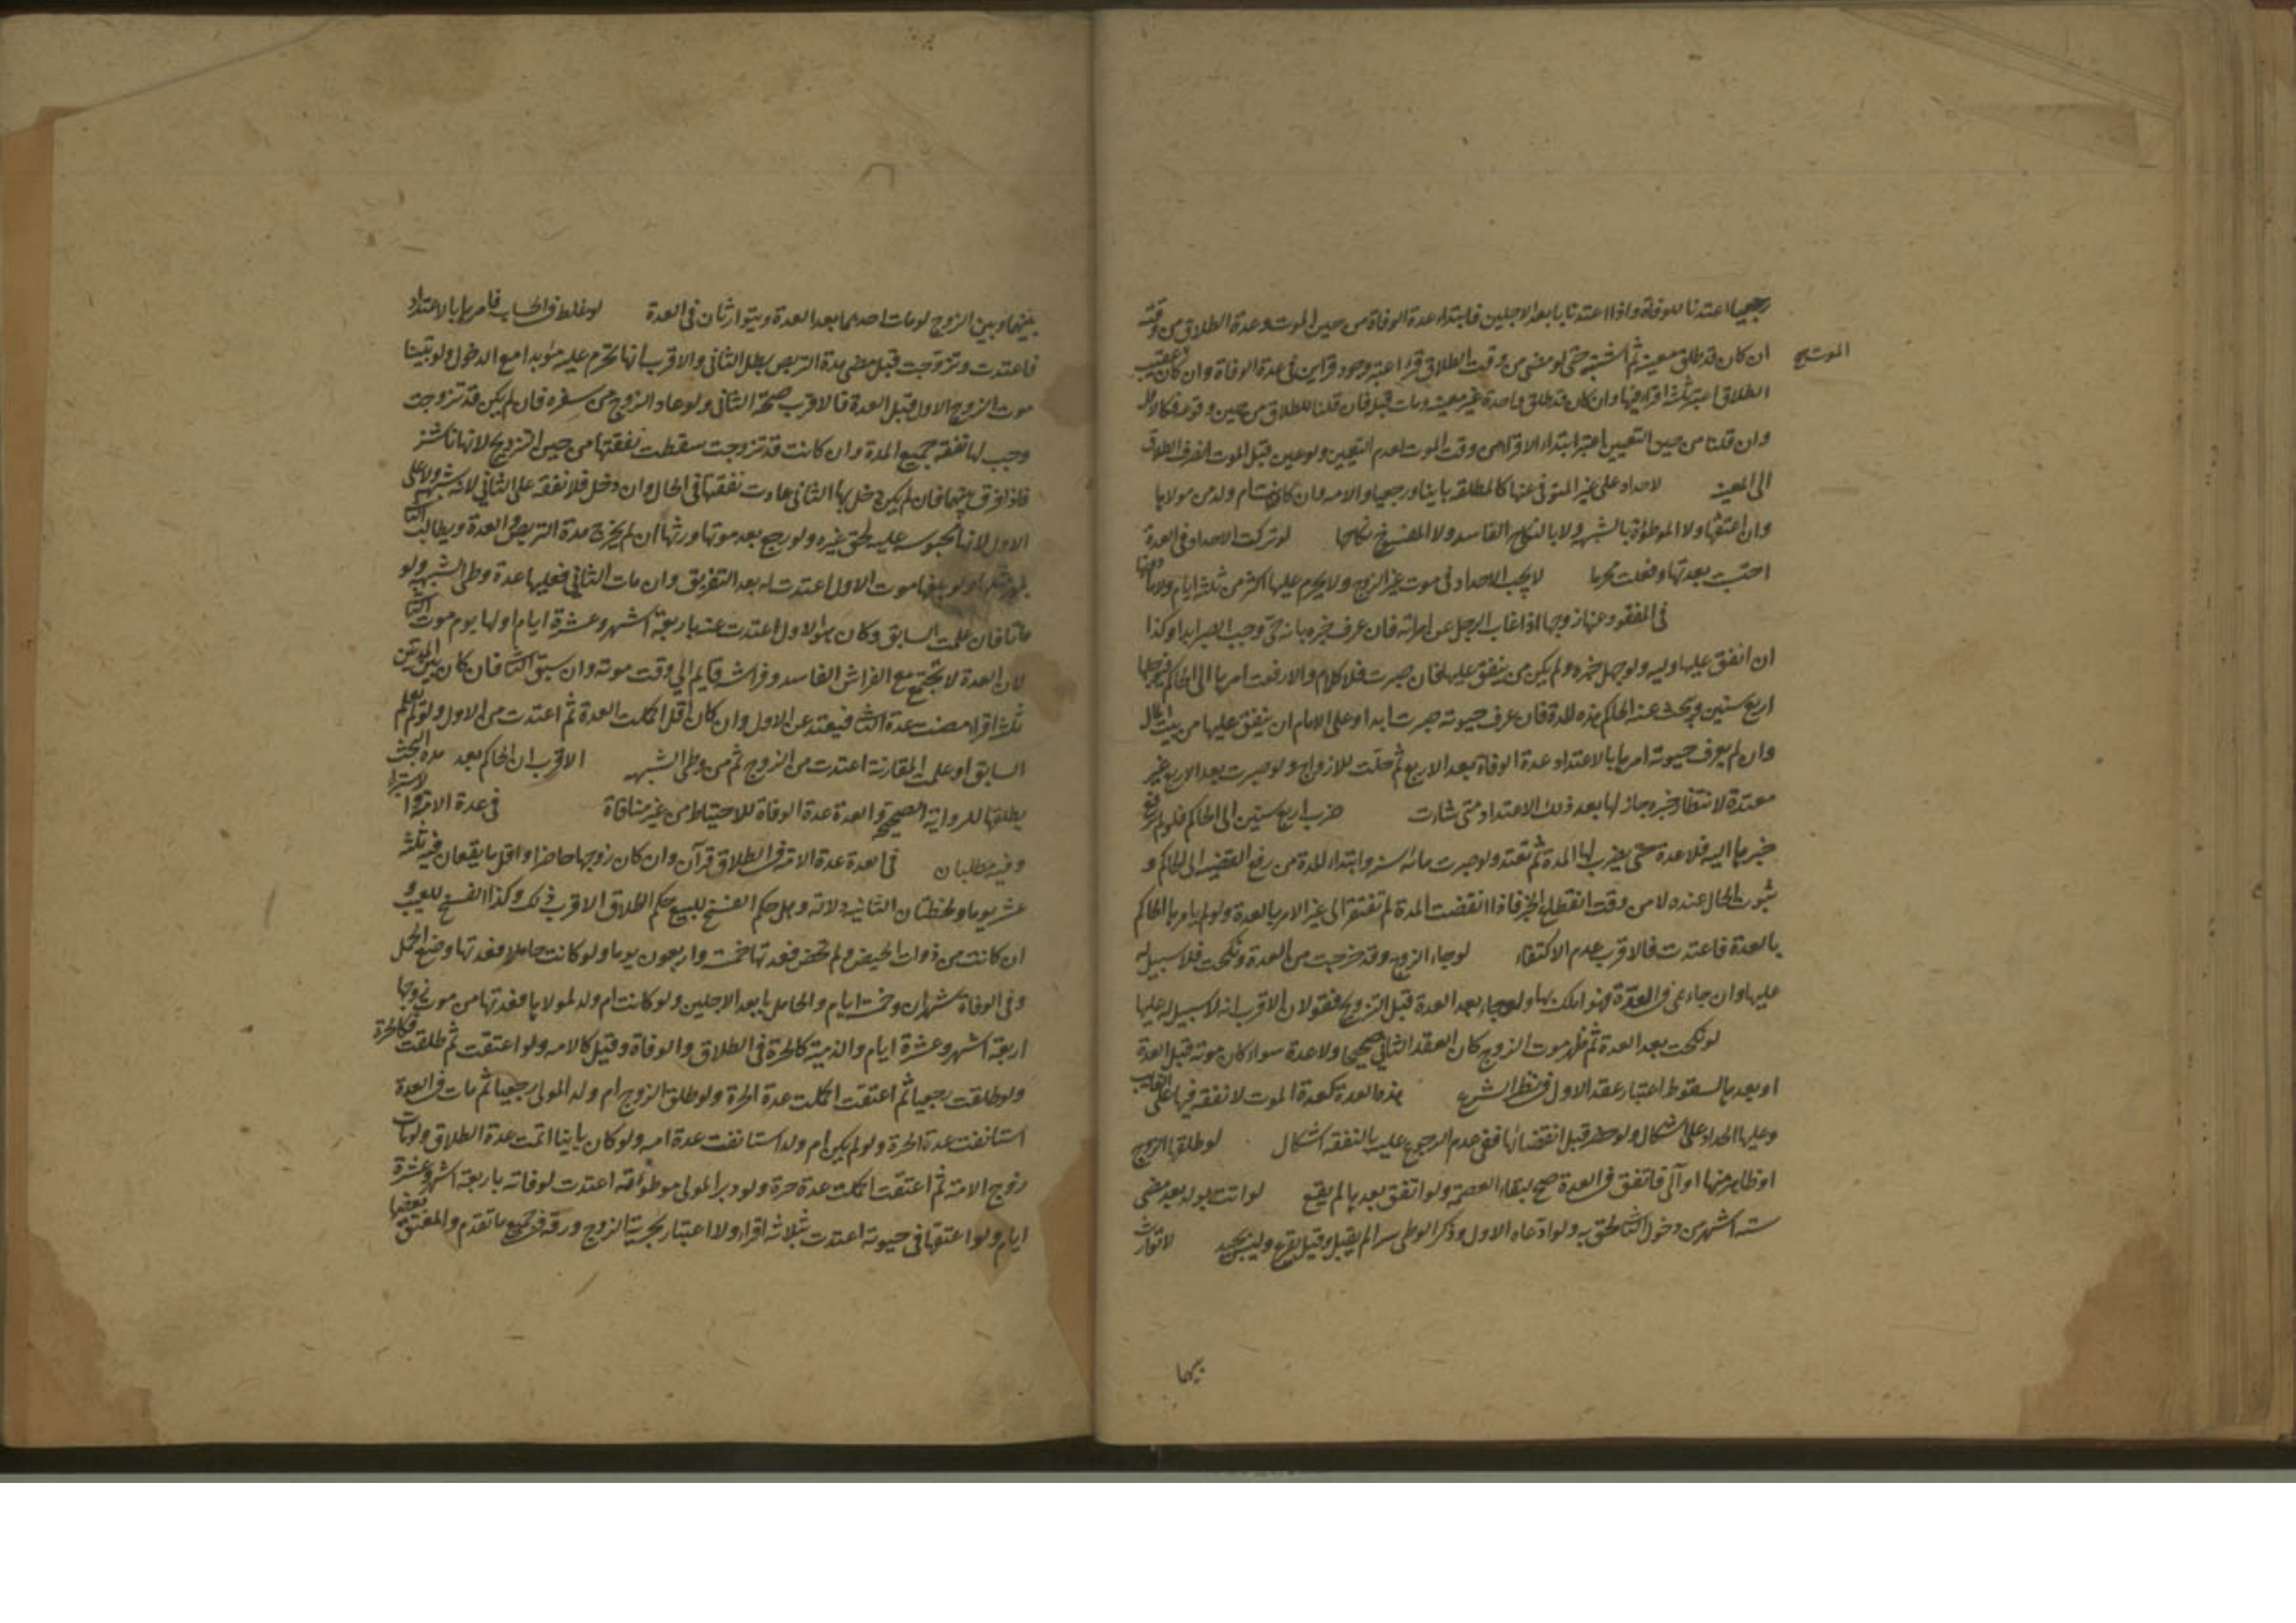 رجعيا اعتدتا للوفاة واذا اعتدتا بابعد الاجلين فابتداء عدة الوفاة من حين الموت وعدة الطلاق من وقته
ان كان قد طلق معينة ثم اشتبه حتى لو مضى من وقت الطلاق قرء اعتبر وجود قراين في عدة الوفاة وان كان عقيب
الموت
الطلاق اعتبر ثلثة اقراء فيها وان كان قد طلق واحدة غير معينة ومات قبله فان قلنا للطلاق من حين وقوعه فكالاول
وان قلنا من حين التعيين اعتبر ابتداء الاقراء من وقت الموت لعدم التعيين ولو عين قبل الموت انصرف الطلاق
الى المعينة لا حداد على غير المتوفى عنها كالمطلقة باينا ورجعيا والامة وان كانت ام ولد من مولاها
وان اعتقها ولا الموطؤة بالشبهة ولا بالنكاح الفاسد ولا المفسوخ نكاحها لو تركت الاحداد في العدة
احتسب بعدتها وفعلت محرما لا يجب الاحداد في موت غير الزوج ولا يحرم عليها اكثر من ثلثة ايام ولا ما دونها
في المفقود عنها زوجها اذا غاب الرجل عن امراته فان عرف خبره بانه حي وجب الصبر ابدا وكذا
ان انفق عليها وليه ولو جهل خبره ولم يكن من ينفق عليها فان صبرت فلا كلام والا رفعت امرها الى الحاكم فيؤجلها
اربع سنين ويبحث عنه الحاكم هذه المدة فان عرف حيوته صبرت ابدا وعلى الامام ان ينفق عليها من بيت المال
وان لم يعرف حيوته امرها بالاعتداد عدة الوفاة بعد الاربع ثم حلت للازواج ولو صبرت بعد الاربع غير
معتدة لانتظار خبره جاز لها بعد ذلك الاعتداد متى شاءت ضرب اربع سنين الى الحاكم فلو لم ترفع
خبرها اليه فلا عدة حتى يضرب لها المدة ثم تعتد ولو صبرت مائة سنة وابتداء المدة من رفع القضية الى الحاكم و
ثبوت الحال عنده لا من وقت انقطاع الخبر فاذا انقضت المدة لم تفتقر الى غير الامر بالعدة ولو لم يامرها الحاكم
بالعدة فاعتدت فالاقرب عدم الاكتفاء لو جاء الزوج وقد خرجت من العدة ونكحت فلا سبيل له
عليها وان جاء في العدة فهو املك بها ولو جاء بعد العدة قبل التزويج فقولان الاقرب انه لا سبيل له عليها
لو نكحت بعد العدة ثم ظهر موت الزوج كان العقد الثاني صحيحا ولا عدة سواء كان موته قبل العدة
او بعدها لسقوط اعتبار عقد الاول في نظر الشرع هذه العدة كعدة الموت لا نفقة فيها على الغايب
وعليها الحداد على اشكال ولو حضر قبل انقضائها ففي عدم الرجوع عليه بالنفقة اشكال لو طلقها الزوج
او ظاهر منها او آلى فاتفق في العدة صح لبقاء العصمة ولو اتفق بعدها لم يقع لو اتت بولد بعد مضي
ستة اشهر من دخول الثاني لحق به ولو ادعاه الاول وذكر الوطي سرا لم يقبل وقيل يقرع وليس بجيد لا توارث
بينهما
بينهما وبين الزوج لو مات احدهما بعد العدة ويتوارثان في العدة لو غلط في الحساب فامرها بالاعتداد
فاعتدت وتزوجت قبل مضي مدة التربص بطل الثاني والاقرب انها تحرم عليه مؤبدا مع الدخول ولو تبينا
موت الزوج الاول قبل العدة فالاقرب صحة الثاني ولو عاد الزوج من سفره فان لم يكن قد تزوجت
وجب لها نفقة جميع المدة وان كانت قد تزوجت سقطت نفقتها من حين التزويج لانها ناشز
فاذا فرق بينهما فان لم يكن دخل بها الثاني عادت نفقتها في الحال وان دخل فلا نفقة على الثاني لانه شبهة ولا على
الاول لانها محبوسة عليه لحق غيره ولو رجع بعد موتها ورثها ان لم يخرج مدة التربص والعدة ويطالب الثاني
بمهر مثلها ولو بلغها موت الاول اعتدت له بعد التفريق وان مات الثاني فعليها عدة وطي الشبهة ولو
ماتا فان علمت السابق وكان هو الاول اعتدت عنه باربعة اشهر وعشرة ايام اولها يوم موت الثاني
لان العدة لا تجتمع مع الفراش الفاسد وفراشه قايم الى وقت موته وان سبق الثاني فان كان بين الموتين
ثلثة اقراء مضت عدة الثاني فيعتد عن الاول وان كان اقل اكملت العدة ثم اعتدت من الاول ولو لم يعلم
السابق او علمت المقارنة اعتدت من الزوج ثم من وطي الشبهة الاقرب ان الحاكم بعد مدة البحث
يطلقها للرواية الصحيحة والعدة عدة الوفاة للاحتياط من غير منافاة في عدة الاماء والاستبراء
وفيه مطلبان في العدة عدة الامة في الطلاق قرآن وان كان زوجها حاضرا واقل ما يقعان فيه ثلثة
عشر يوما ولحظتان الثانية دلالة وهل حكم الفسخ للبيع حكم الطلاق الاقرب ذلك وكذا الفسخ للعيب و
ان كانت من ذوات الحيض ولم تحض فعدتها خمسة واربعون يوما ولو كانت حاملا فعدتها وضع الحمل
وفي الوفاة شهران وخمسة ايام والحامل بابعد الاجلين ولو كانت ام ولد لمولاها فعدتها من موت زوجها
اربعة اشهر وعشرة ايام والذمية كالحرة في الطلاق والوفاة وقيل كالامة ولو اعتقت ثم طلقت فكالحرة
ولو طلقت رجعيا ثم اعتقت اكملت عدة الحرة ولو طلق الزوج ام ولد المولى رجعيا ثم مات في العدة
استانفت عدة الحرة ولو لم يكن ام ولد استانفت عدة امة ولو كان باينا اتمت عدة الطلاق ولو مات
زوج الامة ثم اعتقت اكملت عدة حرة ولو دبر المولى موطوءته اعتدت لوفاته باربعة اشهر وعشرة
ايام ولو اعتقها في حيوته اعتدت بثلاثة اقراء ولا اعتبار بحرية الزوج ورقه في جميع ما تقدم والمعتق بعضها